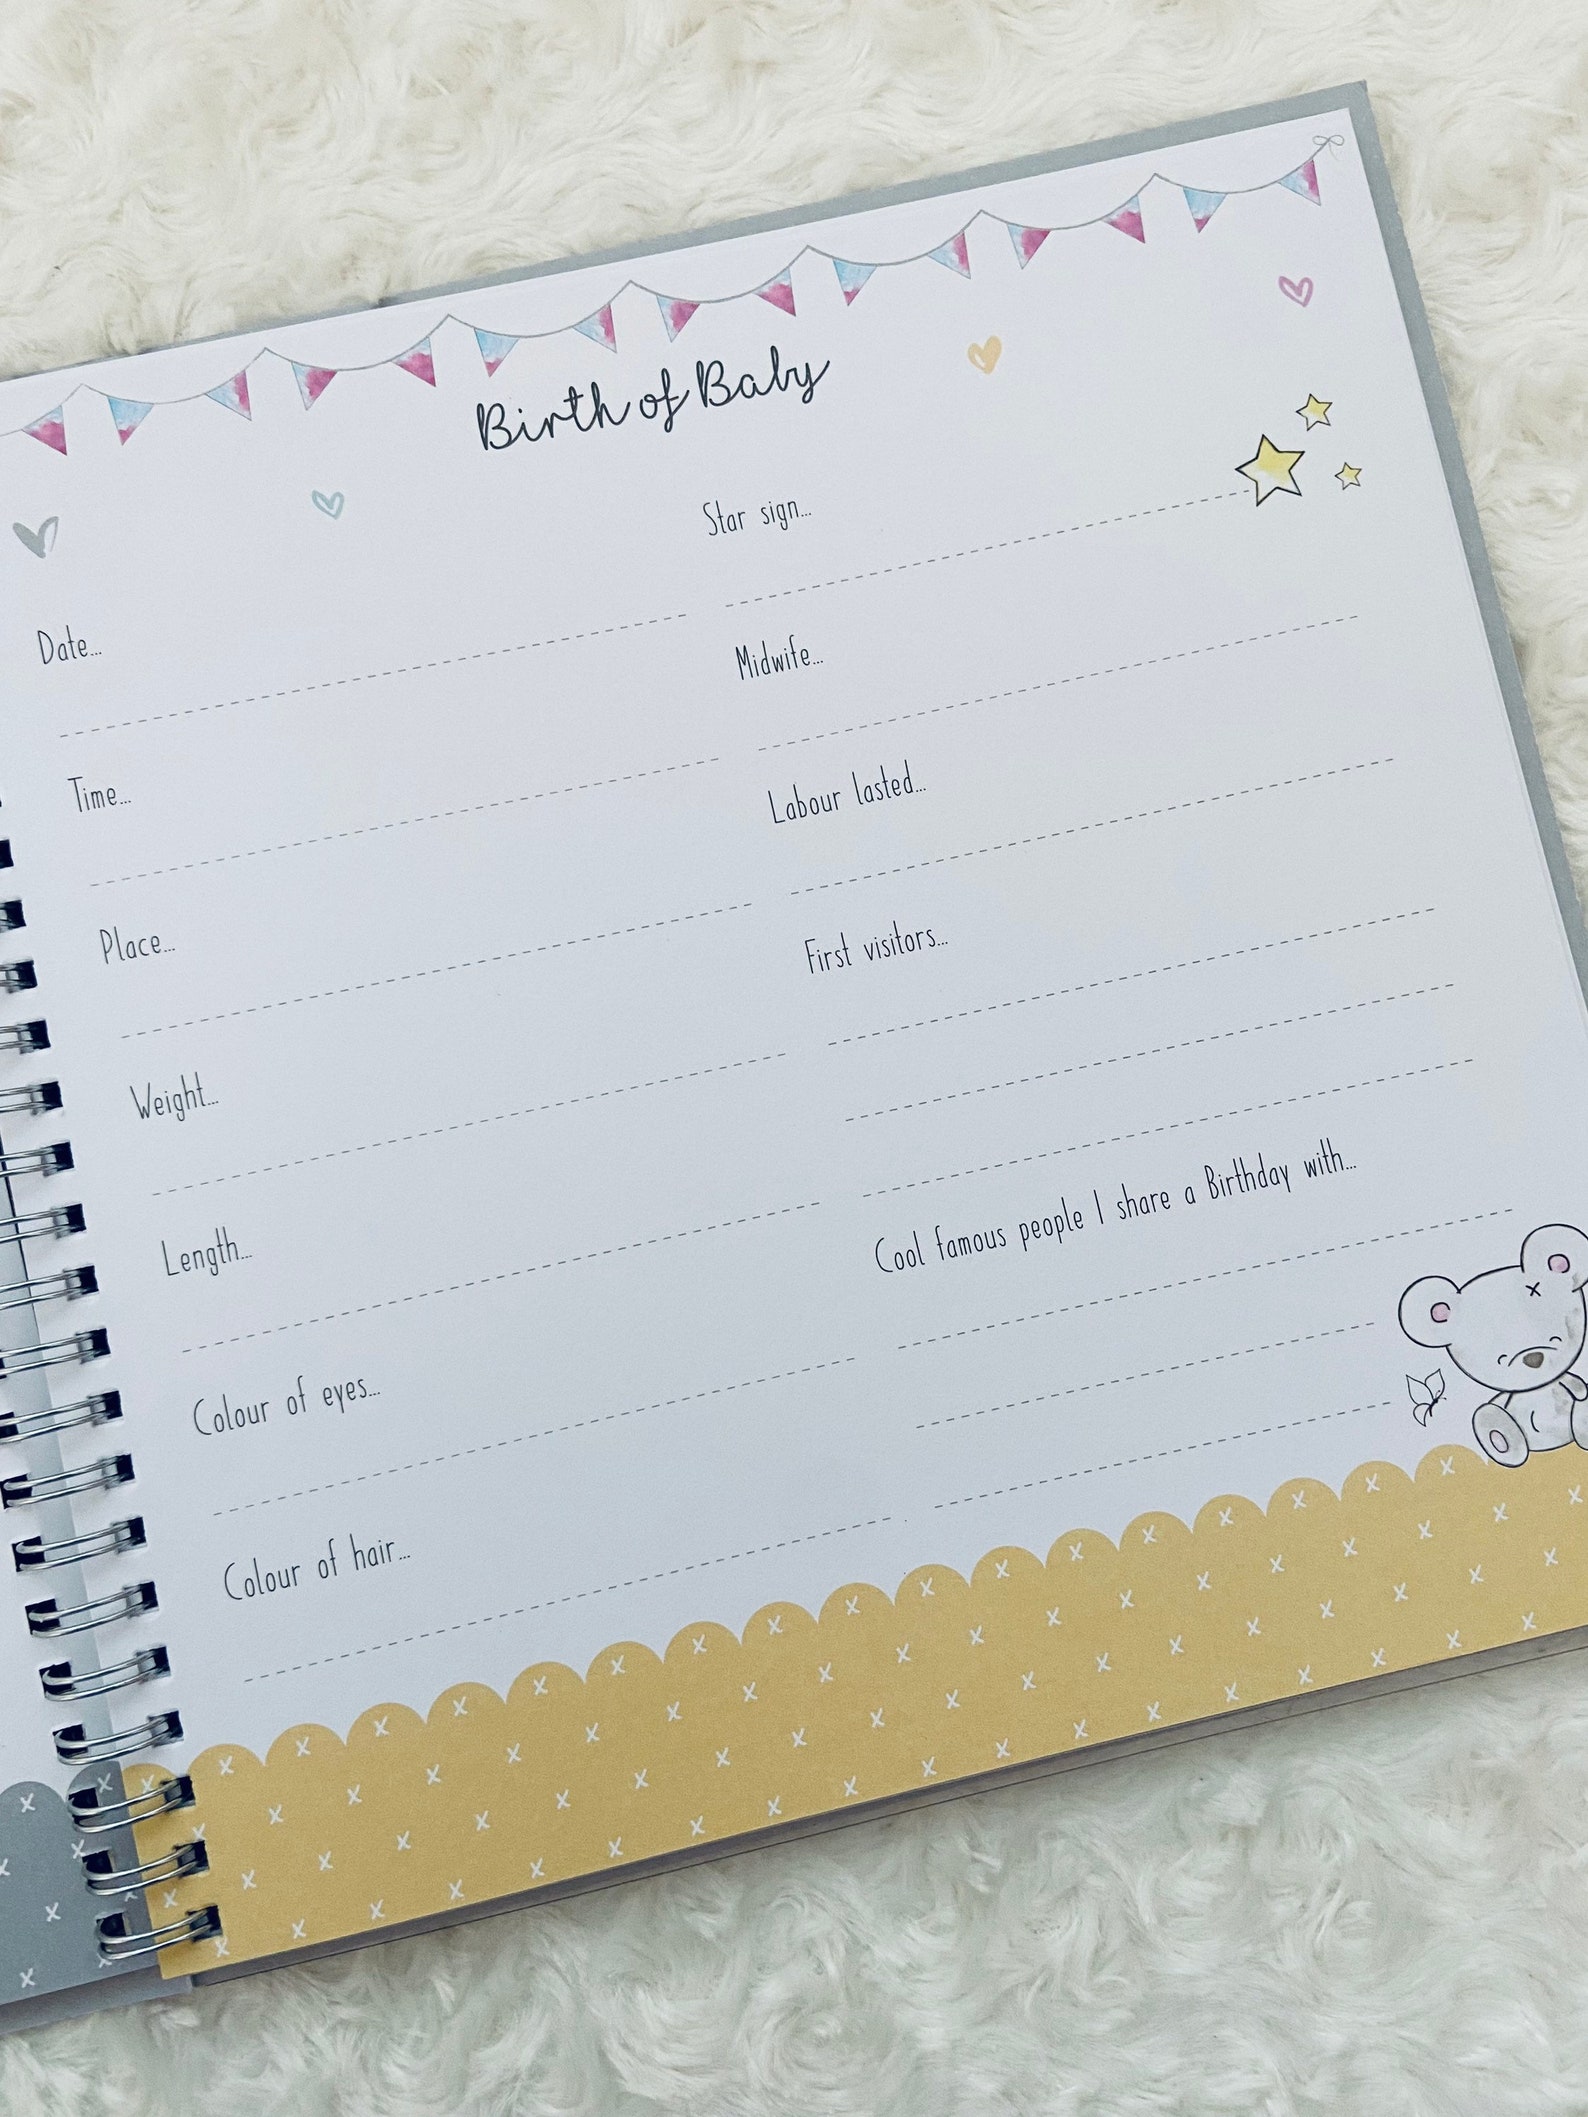 Birth of Baby
Date...
Time...
Place...
Weight...
Length...
Colour of eyes...
Colour of hair...
Star sign...
Midwife...
Labour lasted...
First visitors...
Cool famous people I share a Birthday with...